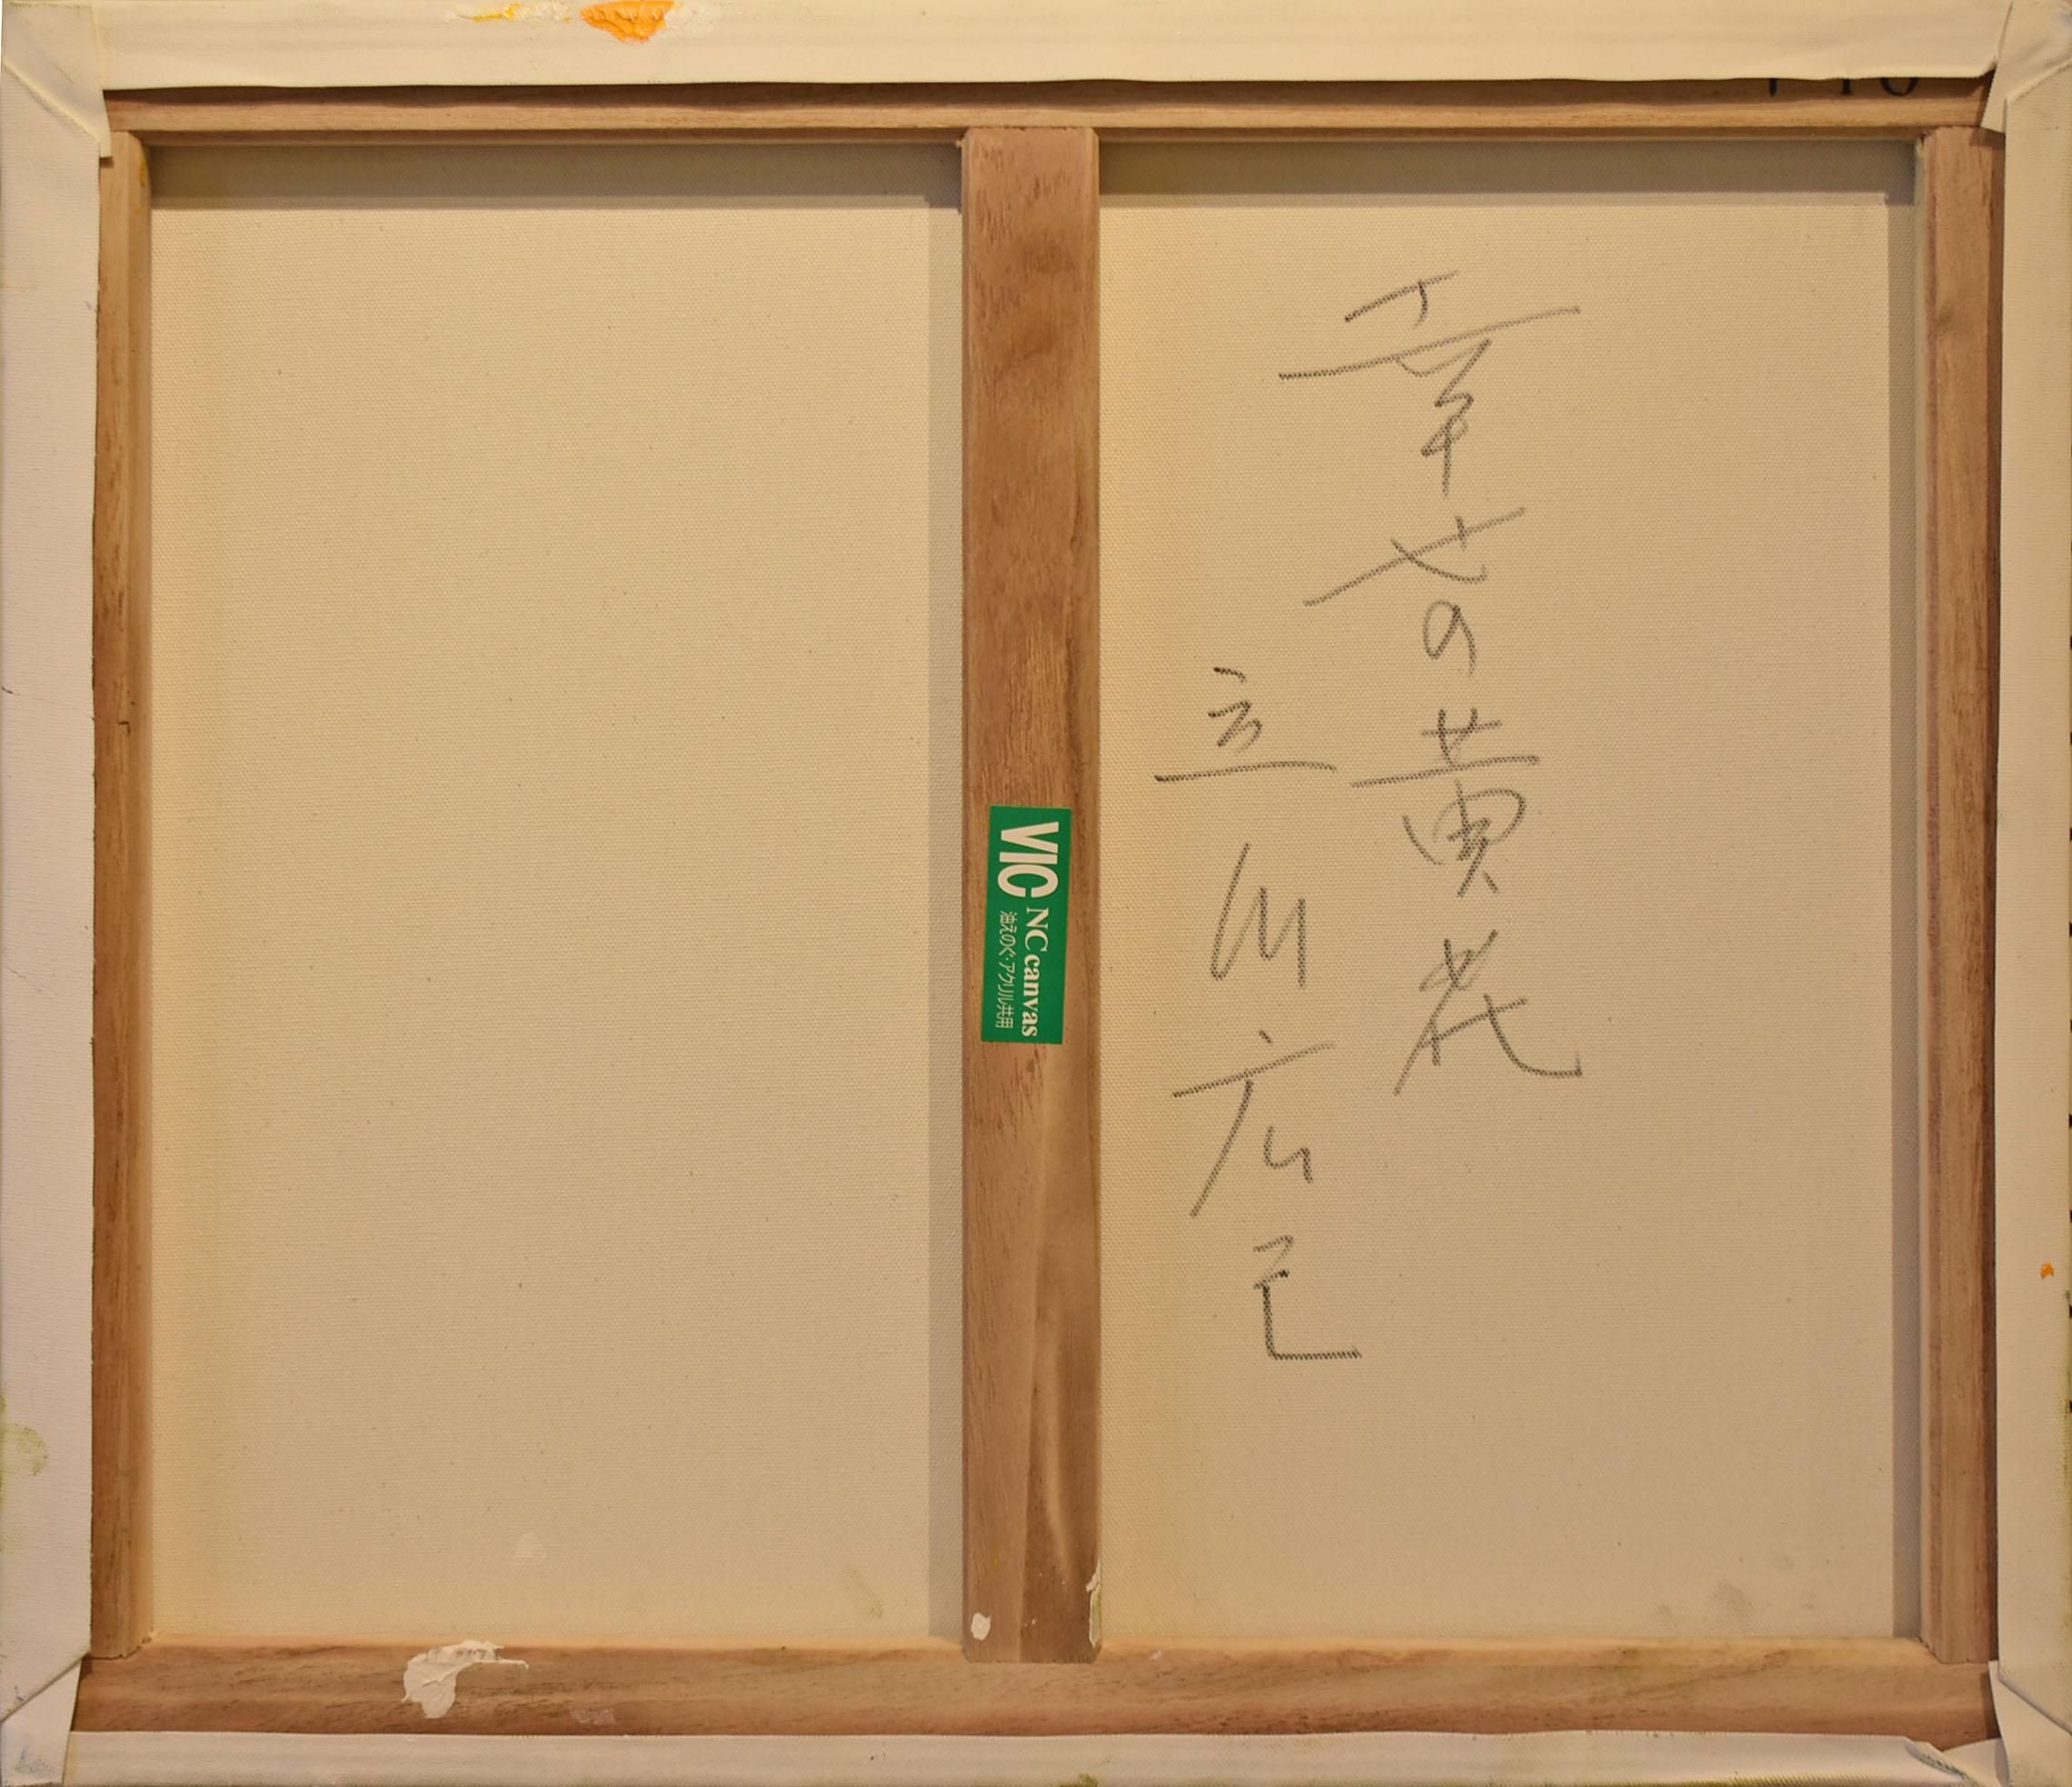 幸せの黄花
立川広己
VIC NC canvas
油えのぐ・アクリル共用